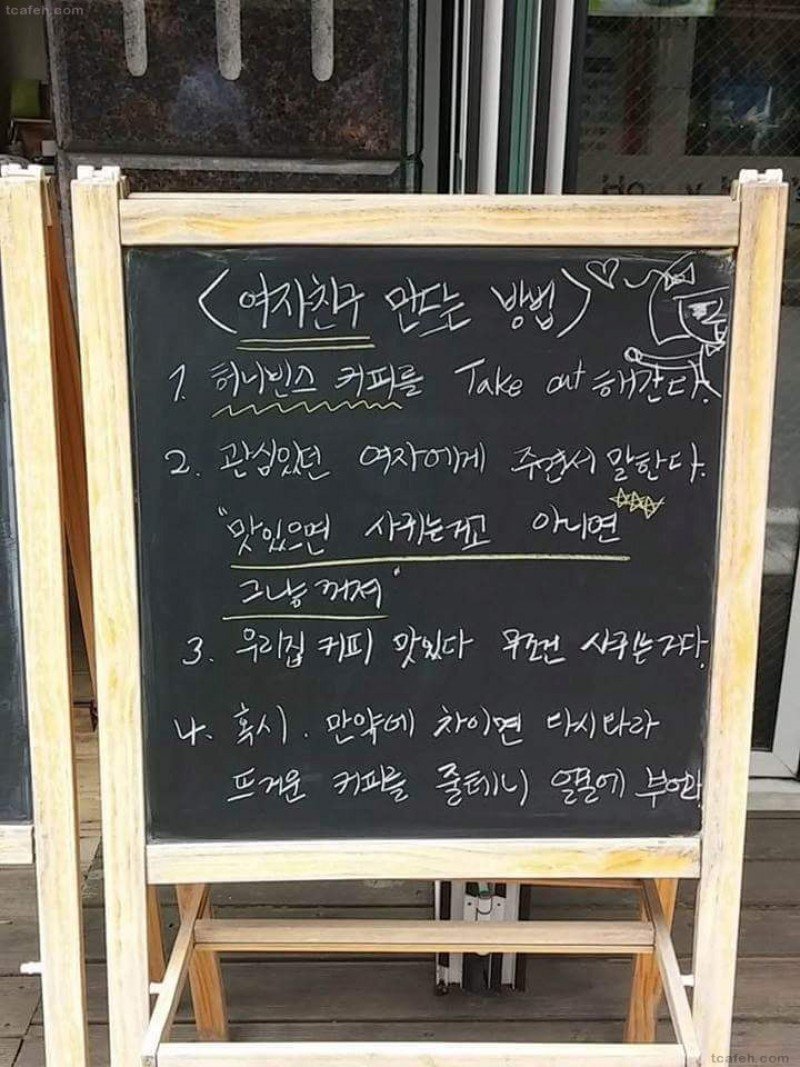 tcafeh.com
<여자친구 만드는 방법>
1. 허니빈스 커피를 Take out 해간다.
2. 관심있던 여자에게 주면서 말한다.
"맛있으면 사귀는거고 아니면
그냥 꺼져"
3. 우리집 커피 맛있다 무조건 사귀는거다.
4. 혹시. 만약에 차이면 다시와라
뜨거운 커피를 줄테니 얼굴에 부어라
tcafeh.com